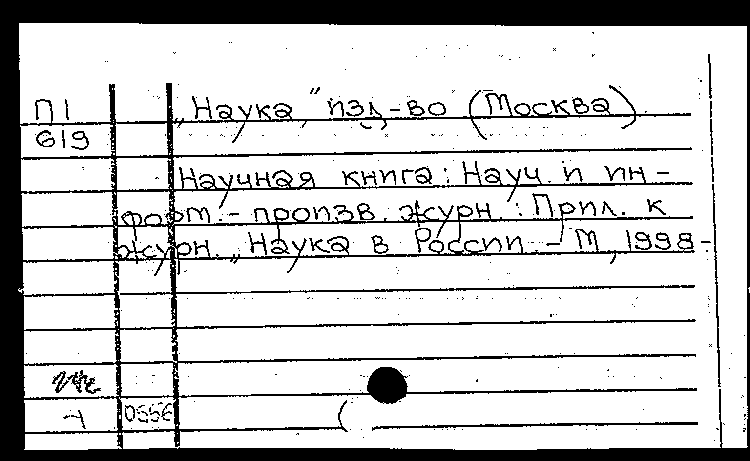 П1
619
„Наука," изд-во (Москва)
Научная книга : Науч. и ин-
форм.-произв. журн. : Прил. к
журн. „Наука в России. - М, 1998-
0556